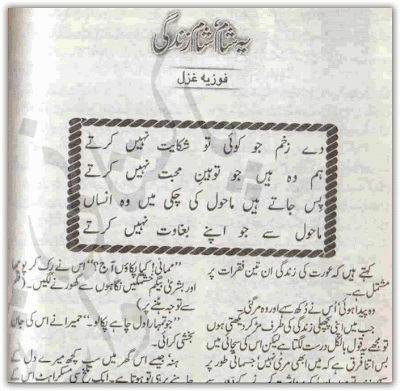 یہ شام شام زندگی
فوزیہ غزل
دے زخم جو کوئی تو شکایت نہیں کرتے
ہم وہ ہیں جو توہینِ محبت نہیں کرتے
پس جاتے ہیں ماحول کی چکی میں وہ انساں
ماحول سے جو اپنے بغاوت نہیں کرتے
کہتے ہیں کہ عورت کی زندگی ان تین فقرات پر
مشتمل ہے۔
وہ پیدا ہوئی اُس نے دُکھ سہے اور وہ مر گئی۔
جب میں اپنی پچھلی زندگی کی طرف مڑ کر دیکھتی ہوں
تو مجھے یہ قول بالکل درست لگتا ہے لیکن اس کی سچائی میں
بس اتنا فرق ہے کہ میں ابھی مری نہیں جسمانی طور پر
”ممانی! کیا پکاؤں آج؟“ اس نے رک کر پوچھا
اور بشریٰ بیگم خشمگیں نگاہوں سے گھورنے لگیں۔ (
سے تو جہنم پر)
”جو تمہارا دل چاہے پکا لو۔“ حمیرا نے اس کی جان
بخشی کرائی۔
ہنہ جیسے اس گھر میں سب کچھ میرے دل کے